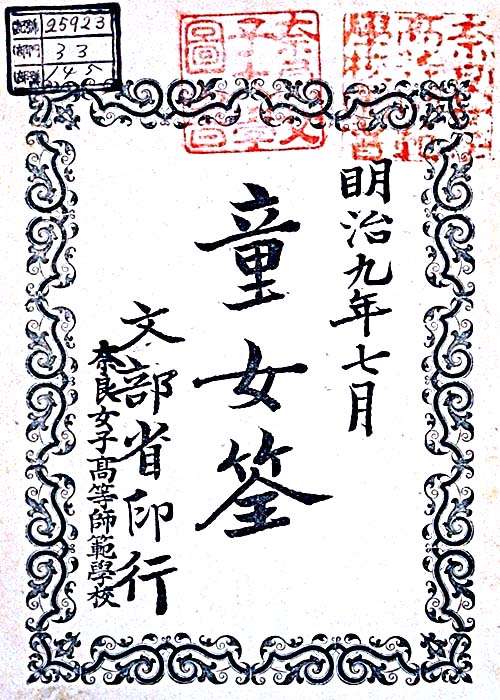 明治九年七月
童女筌
文部省印行
奈良女子高等師範學校
25923
33
645